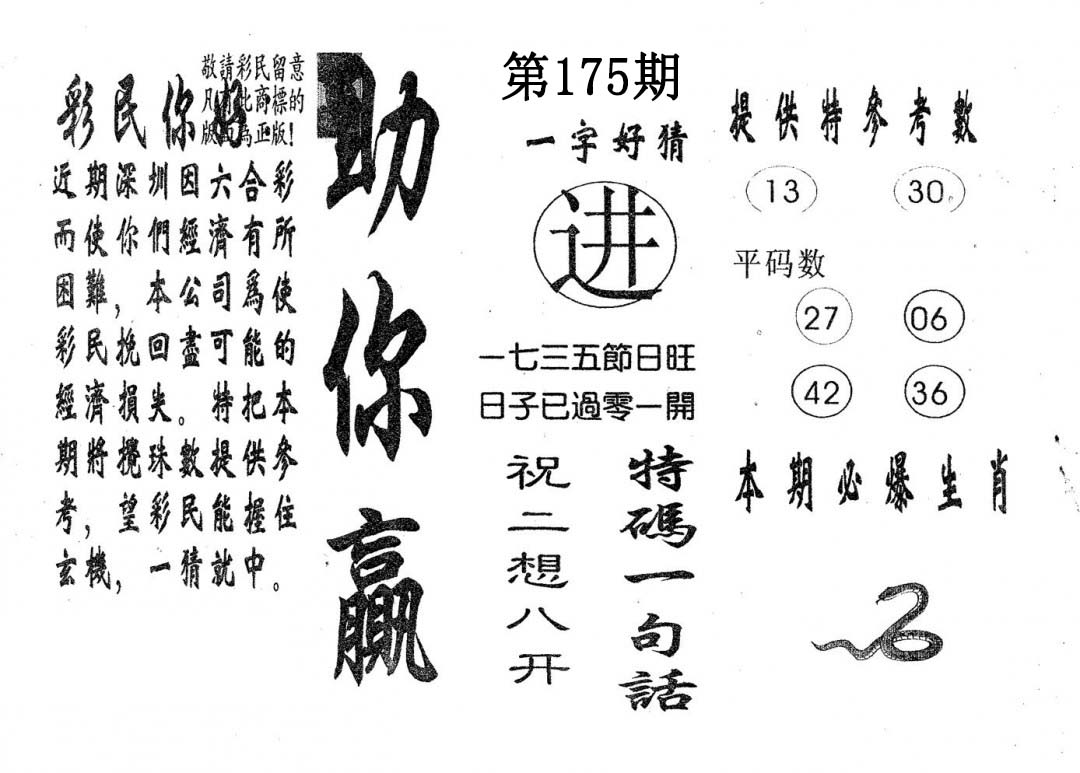 敬請彩民留意
凡有此商標的
版面為正版！
彩民你好
近期深圳因六合彩
而使你們經濟有所
困難，本公司爲使
彩民挽回盡可能的
經濟損失。特把本
期將攪珠數提供參
考，望彩民能握住
玄機，一猜就中。
助你贏
第175期
一字好猜
进
一七三五節日旺
日子已過零一開
特碼一句話
祝二想八开
提供特參考數
13 30
平码数
27 06
42 36
本期必爆生肖